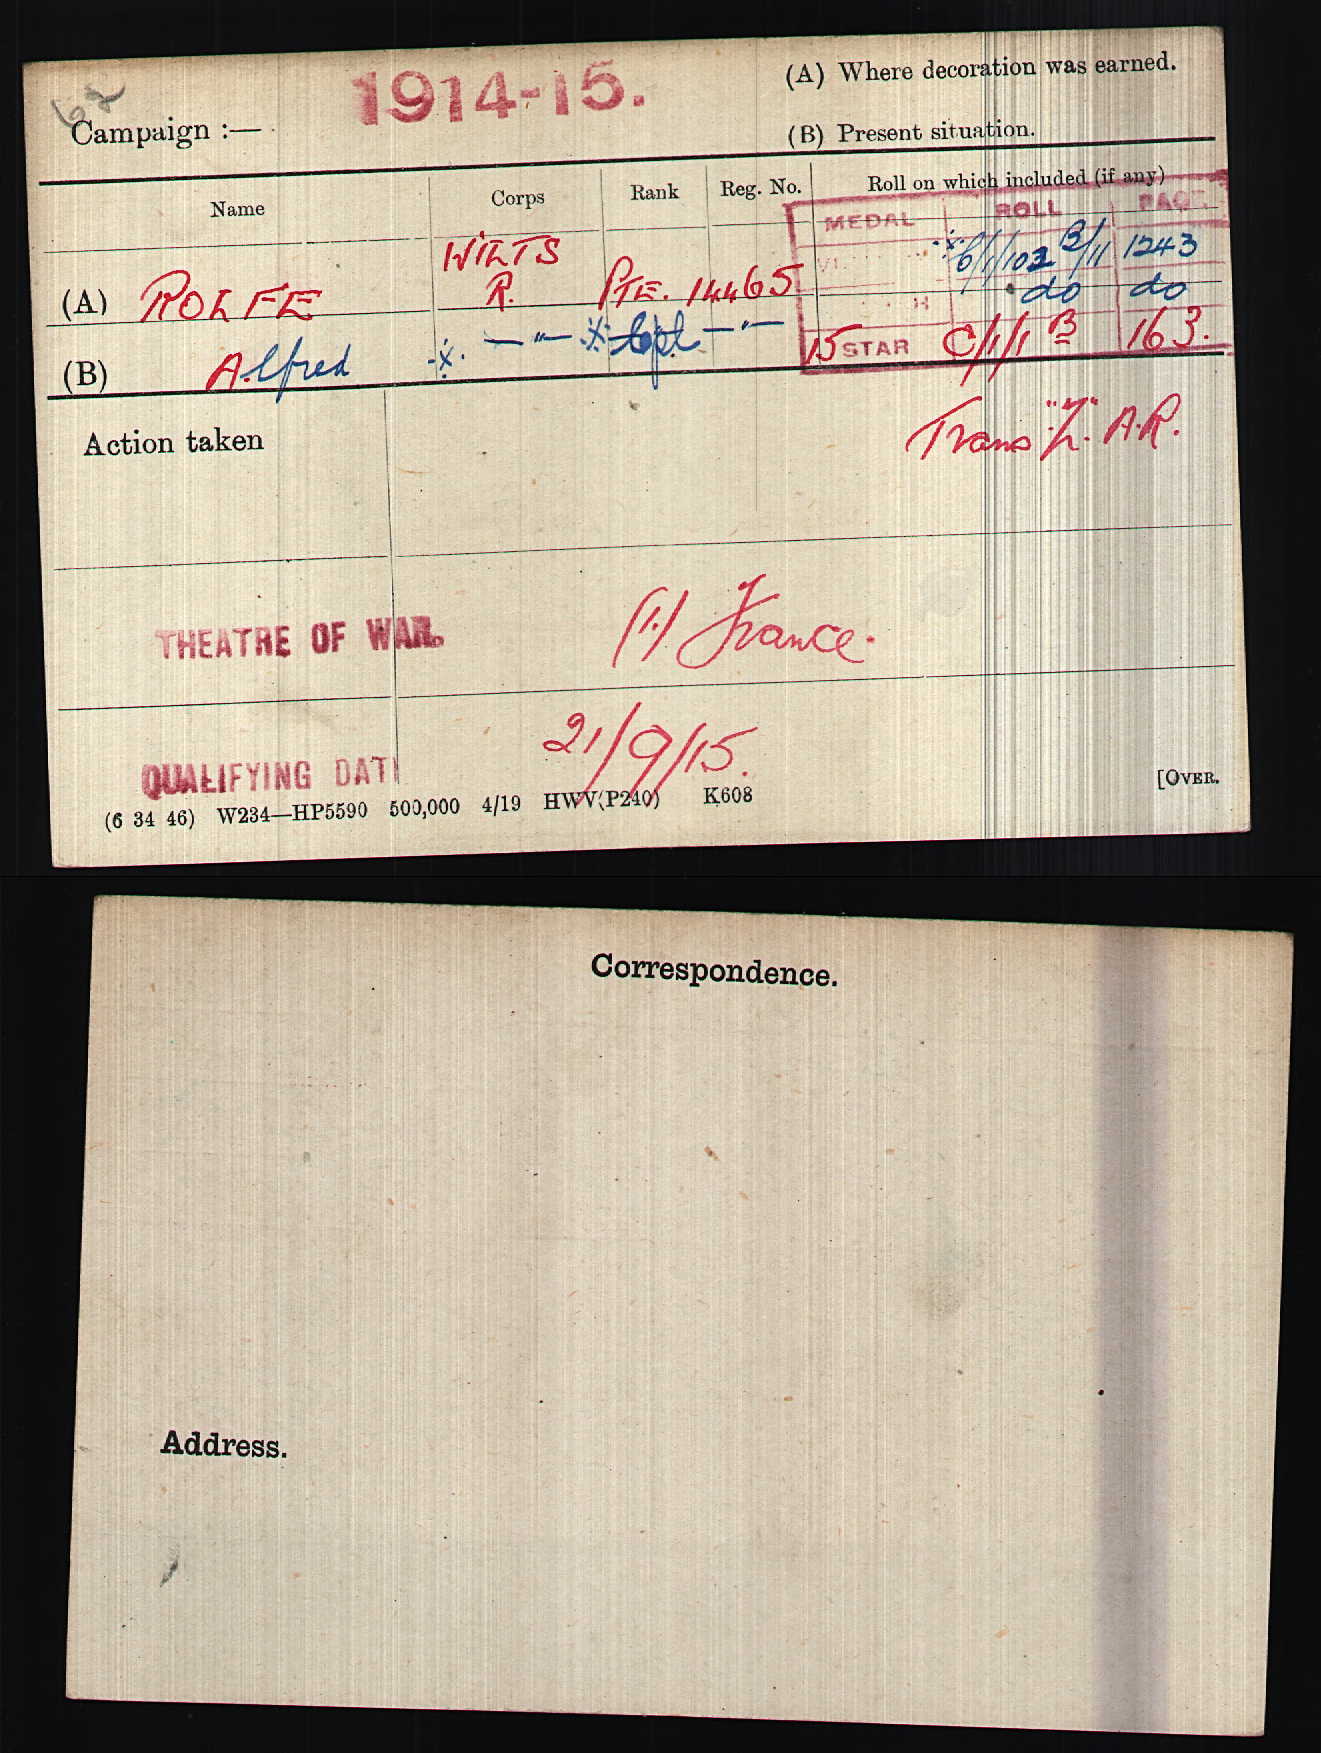 62
1914-15.
Campaign :—
(A) Where decoration was earned.
(B) Present situation.
Name Corps Rank Reg. No. Roll on which included (if any)
MEDAL ROLL PAGE
WILTS
(A) ROLFE R. PTE. 14465
VI ※ 6/1/102 B/11 1243
H do do
(B) Alfred ※ —〃— ※ Cpl —〃—
15 STAR C/1/1 B 163.
Action taken
Trans "Z". A.R.
THEATRE OF WAR. (1) France.
QUALIFYING DAT 21/9/15.
(6 34 46) W234—HP5590 500,000 4/19 HWV(P240) K608
[OVER.
Correspondence.
Address.